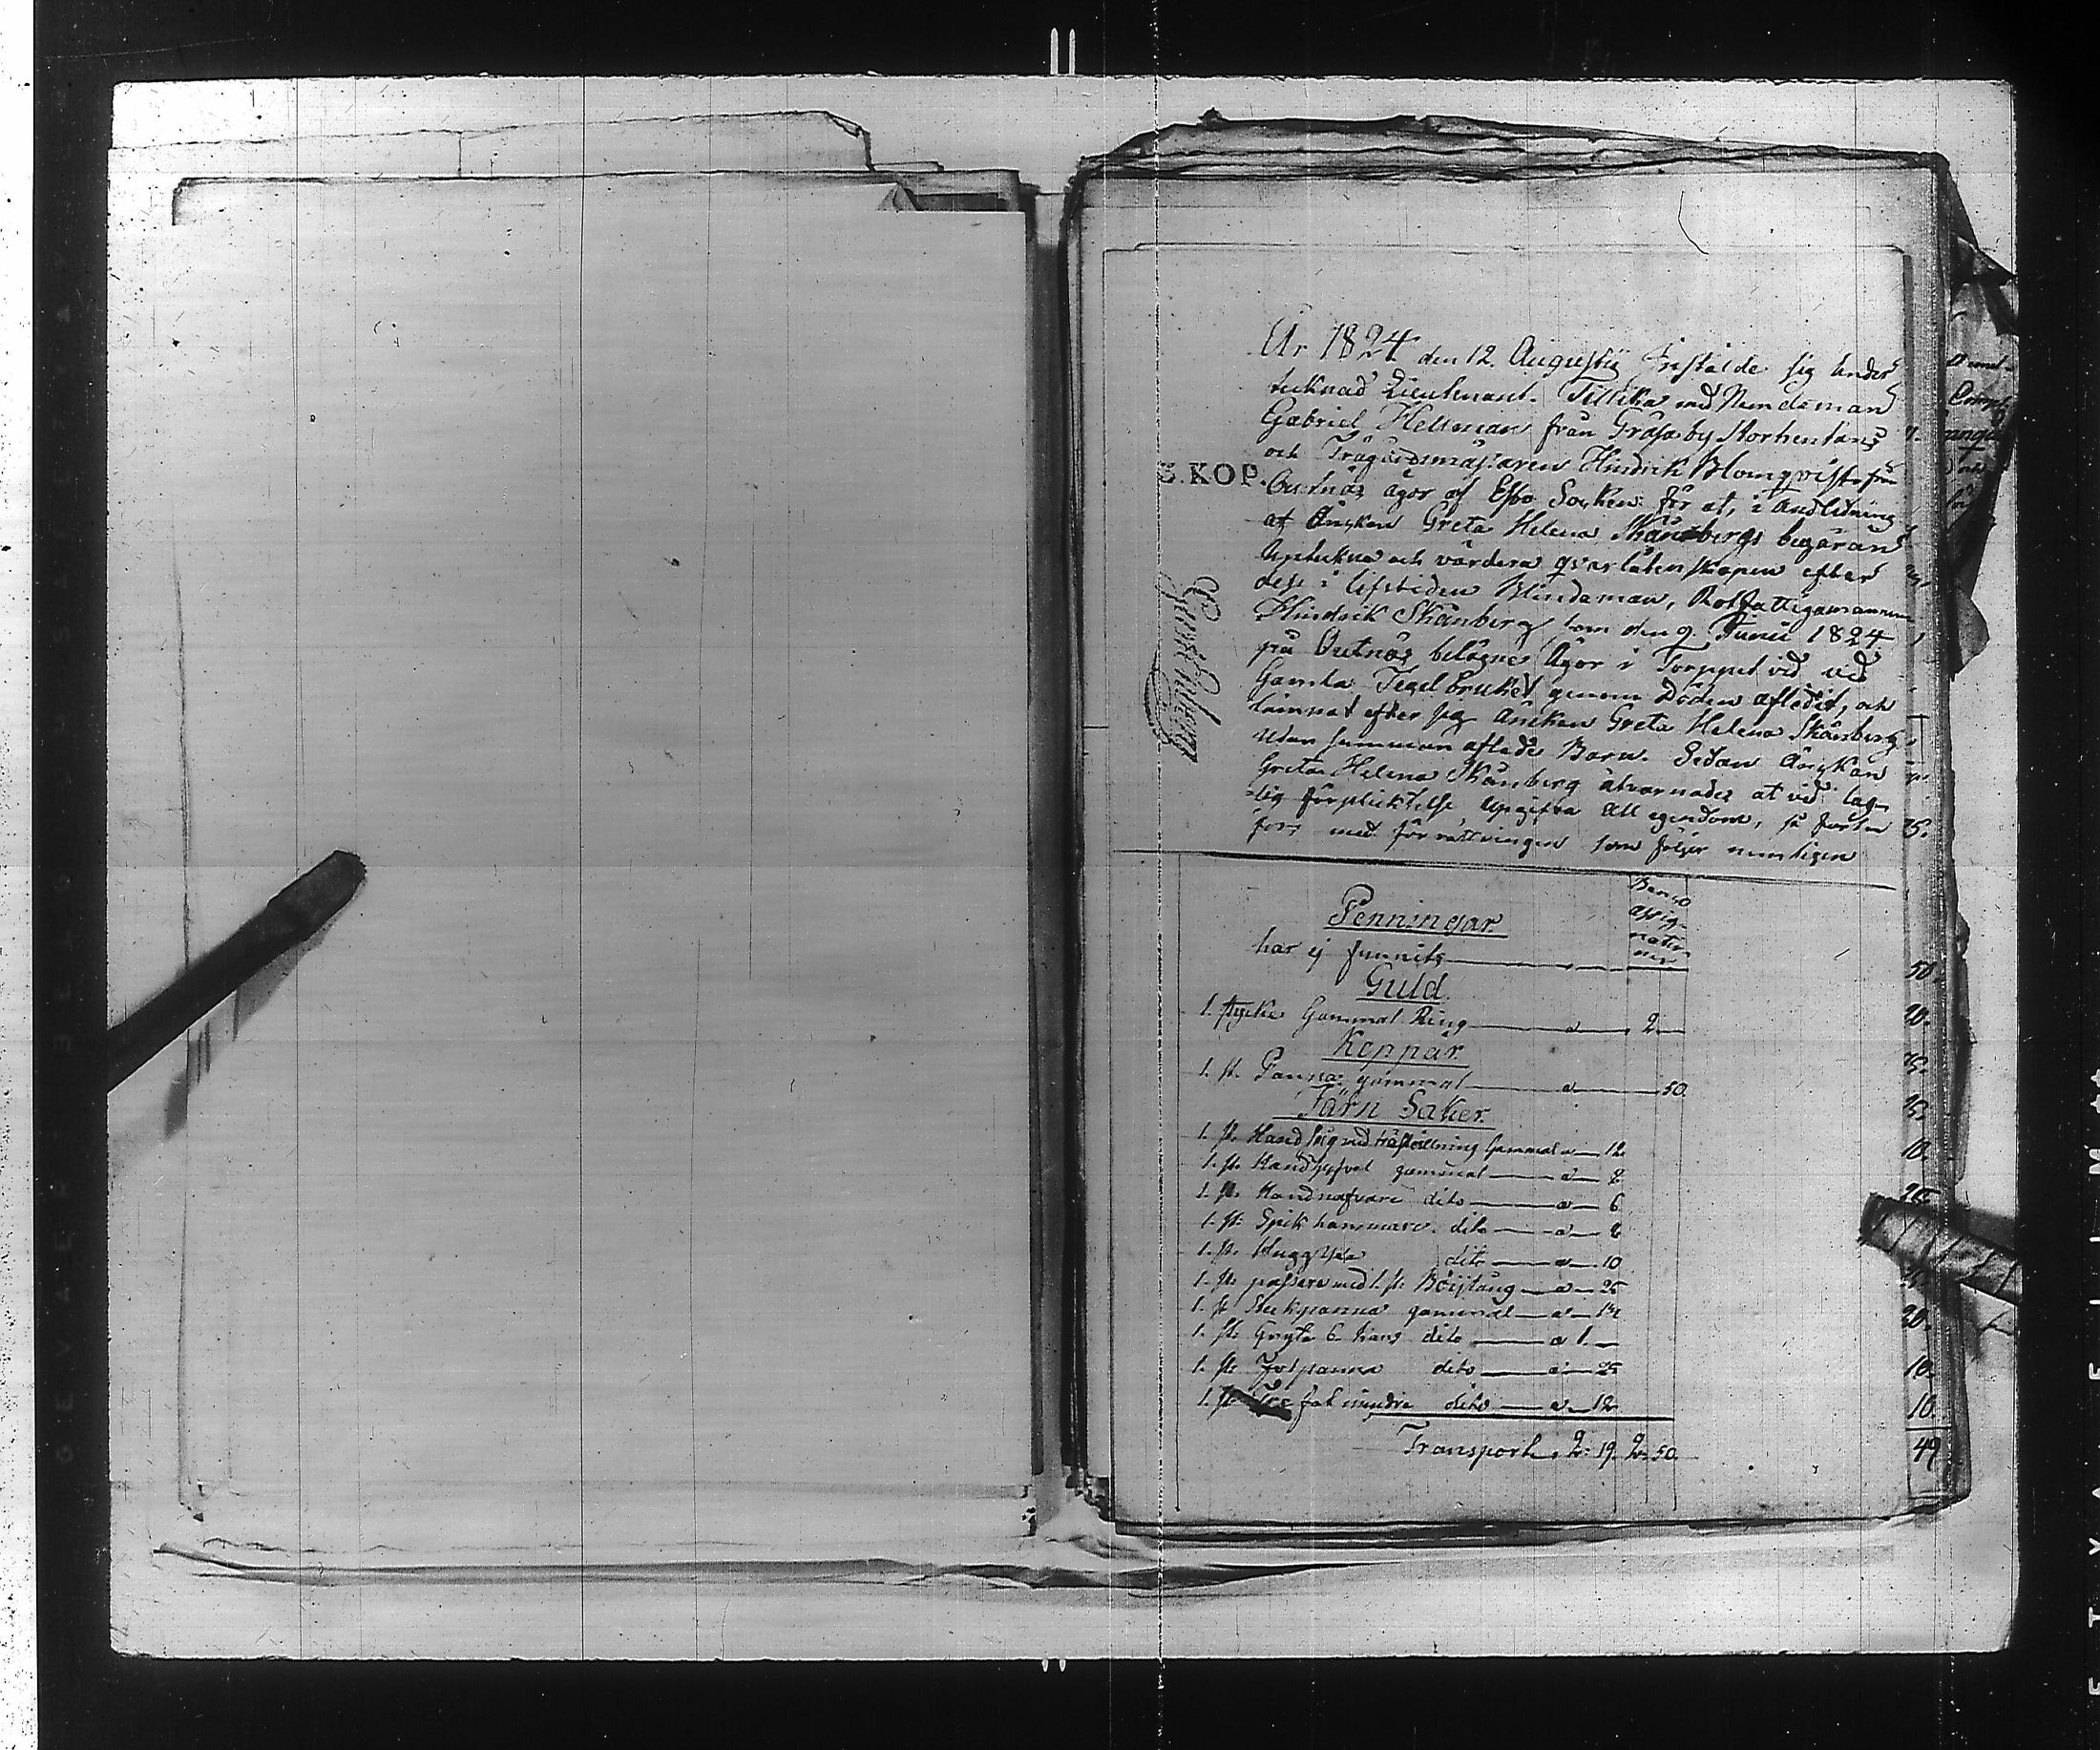 År 1824 den 12. Augusti Instälde sig under
tecknad Lieutenant. Tillika med Nämdeman
Gabriel Hellman från Gräsaby Storhentans
och Trägårdsmästaren Hindrik Blomqvist från
Outnäs ägor af Esbo Socken för at, i Anledning
af Änkan Greta Helena Skånbergs begäran
Uptekna och värdera qvarlåtenskapen efter
dess i lifstiden Bindeman, Rotfattigamannen
Hindrik Skånberg, som den 9. Junii 1824
på Outnäs belägne Ägor i Torppet vid
Gamla Tegelbruket genom Döden aflidit, och
lämnat efter sig Änkan Greta Helena Skånberg
utan samman aflade Barn. Sedan Änkan
Greta Helena Skånberg åtvarnades at vid lag-
lig förplicktelse upgifva all egendom, så fortsa
fors med förrättningen som följer nemligen
S.KOP.
Banco
assig-
natio-
ner
Penningar
har ej funnits
Guld.
1. stycke Gammal Ring a 2
Koppar
1. st. Panna gammal a 50.
Järn Saker.
1. st. Handsåg med träställning Gammal a 12
1. st. Handyxel gammal a 8
1. st. Handnafvare dito a 6
1. st. Spik hammare dito a 6
1. st. Huggyxa dito a 10
1. st. passare med 1. st. Böijtång a 25
1. st. Stekpanna gammal a
1. st. Gryta 6 kans dito a 1.
1. st. Jernpanna dito a 25
1. st. fat mindre dito a 12
Transport 2: 19. 2: 50.
50.
20.
75.
25.
10.
25
20.
10.
10.
49